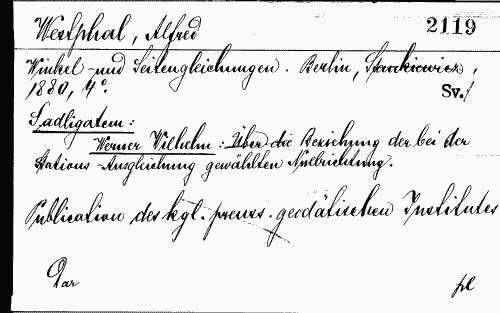 Westphal, Alfred 2119
Winkel- und Seitengleichungen. Berlin, Stankiewicz,
1880, 4°. Sv./
Sadligatem:
Werner Wilhelm: Über die Beziehung der bei der
Stations-Ausgleichung gewählten Nullrichtung.
Publication des kgl. preuss. geodätischen Institutes
Dar pl